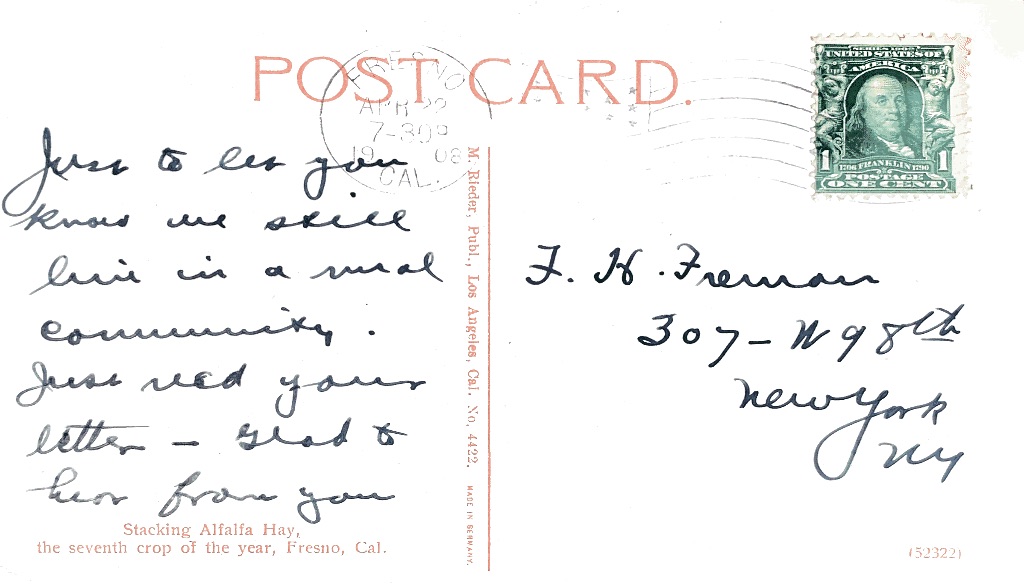 POST CARD.
FRESNO
APR 22
7-30P
1908
CAL.
SERIES 1902
UNITED STATES OF
AMERICA
1 1706 FRANKLIN 1790 1
POSTAGE
ONE CENT
Just to let you
know we still
live in a rural
community.
Just rec'd your
letter – Glad to
hear from you
M. Rieder, Publ., Los Angeles, Cal. No, 4422.
MADE IN GERMANY.
F. H. Freman
307 – W 98th
New York
NY
Stacking Alfalfa Hay,
the seventh crop of the year, Fresno, Cal.
(52322)